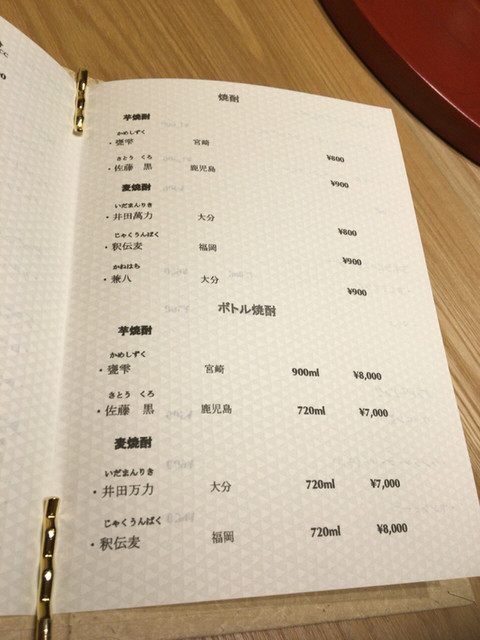 焼酎
芋焼酎
かめしずく
・甕雫 宮崎 ¥800
さとう くろ
・佐藤 黒 鹿児島 ¥900
麦焼酎
いだまんりき
・井田萬力 大分 ¥800
じゃくうんばく
・釈伝麦 福岡 ¥900
かねはち
・兼八 大分 ¥900
ボトル焼酎
芋焼酎
かめしずく
・甕雫 宮崎 900ml ¥8,000
さとう くろ
・佐藤 黒 鹿児島 720ml ¥7,000
麦焼酎
いだまんりき
・井田万力 大分 720ml ¥7,000
じゃくうんばく
・釈伝麦 福岡 720ml ¥8,000